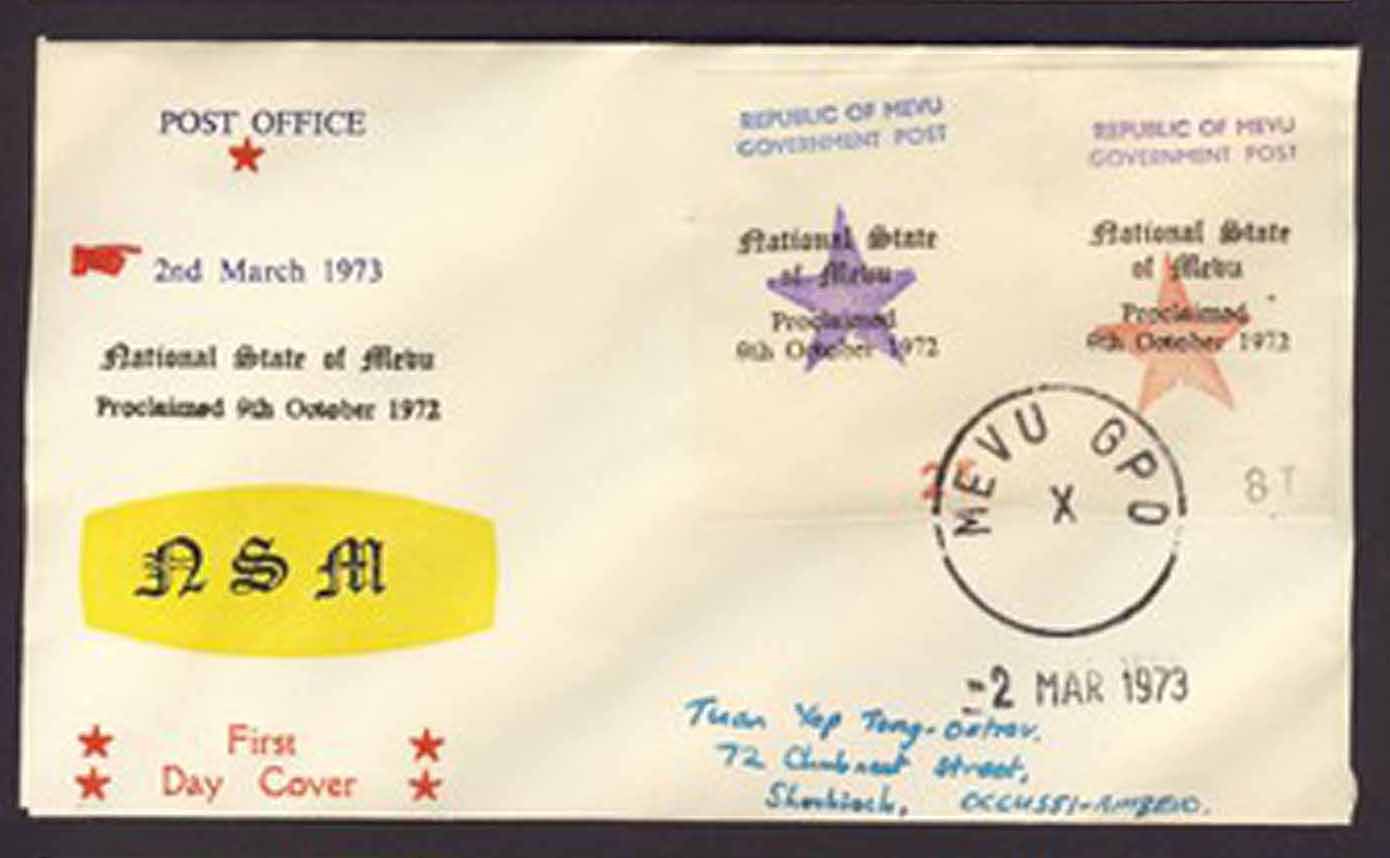 POST OFFICE
2nd March 1973
National State of Mevu
Proclaimed 9th October 1972
NSM
First
Day Cover
REPUBLIC OF MEVU
GOVERNMENT POST
National State
of Mevu
Proclaimed
9th October 1972
REPUBLIC OF MEVU
GOVERNMENT POST
National State
of Mevu
Proclaimed
9th October 1972
8T
MEVU GPO
X
-2 MAR 1973
Tuan Yap Tong-
72 Street,
OCCUSSI-AMBENO.